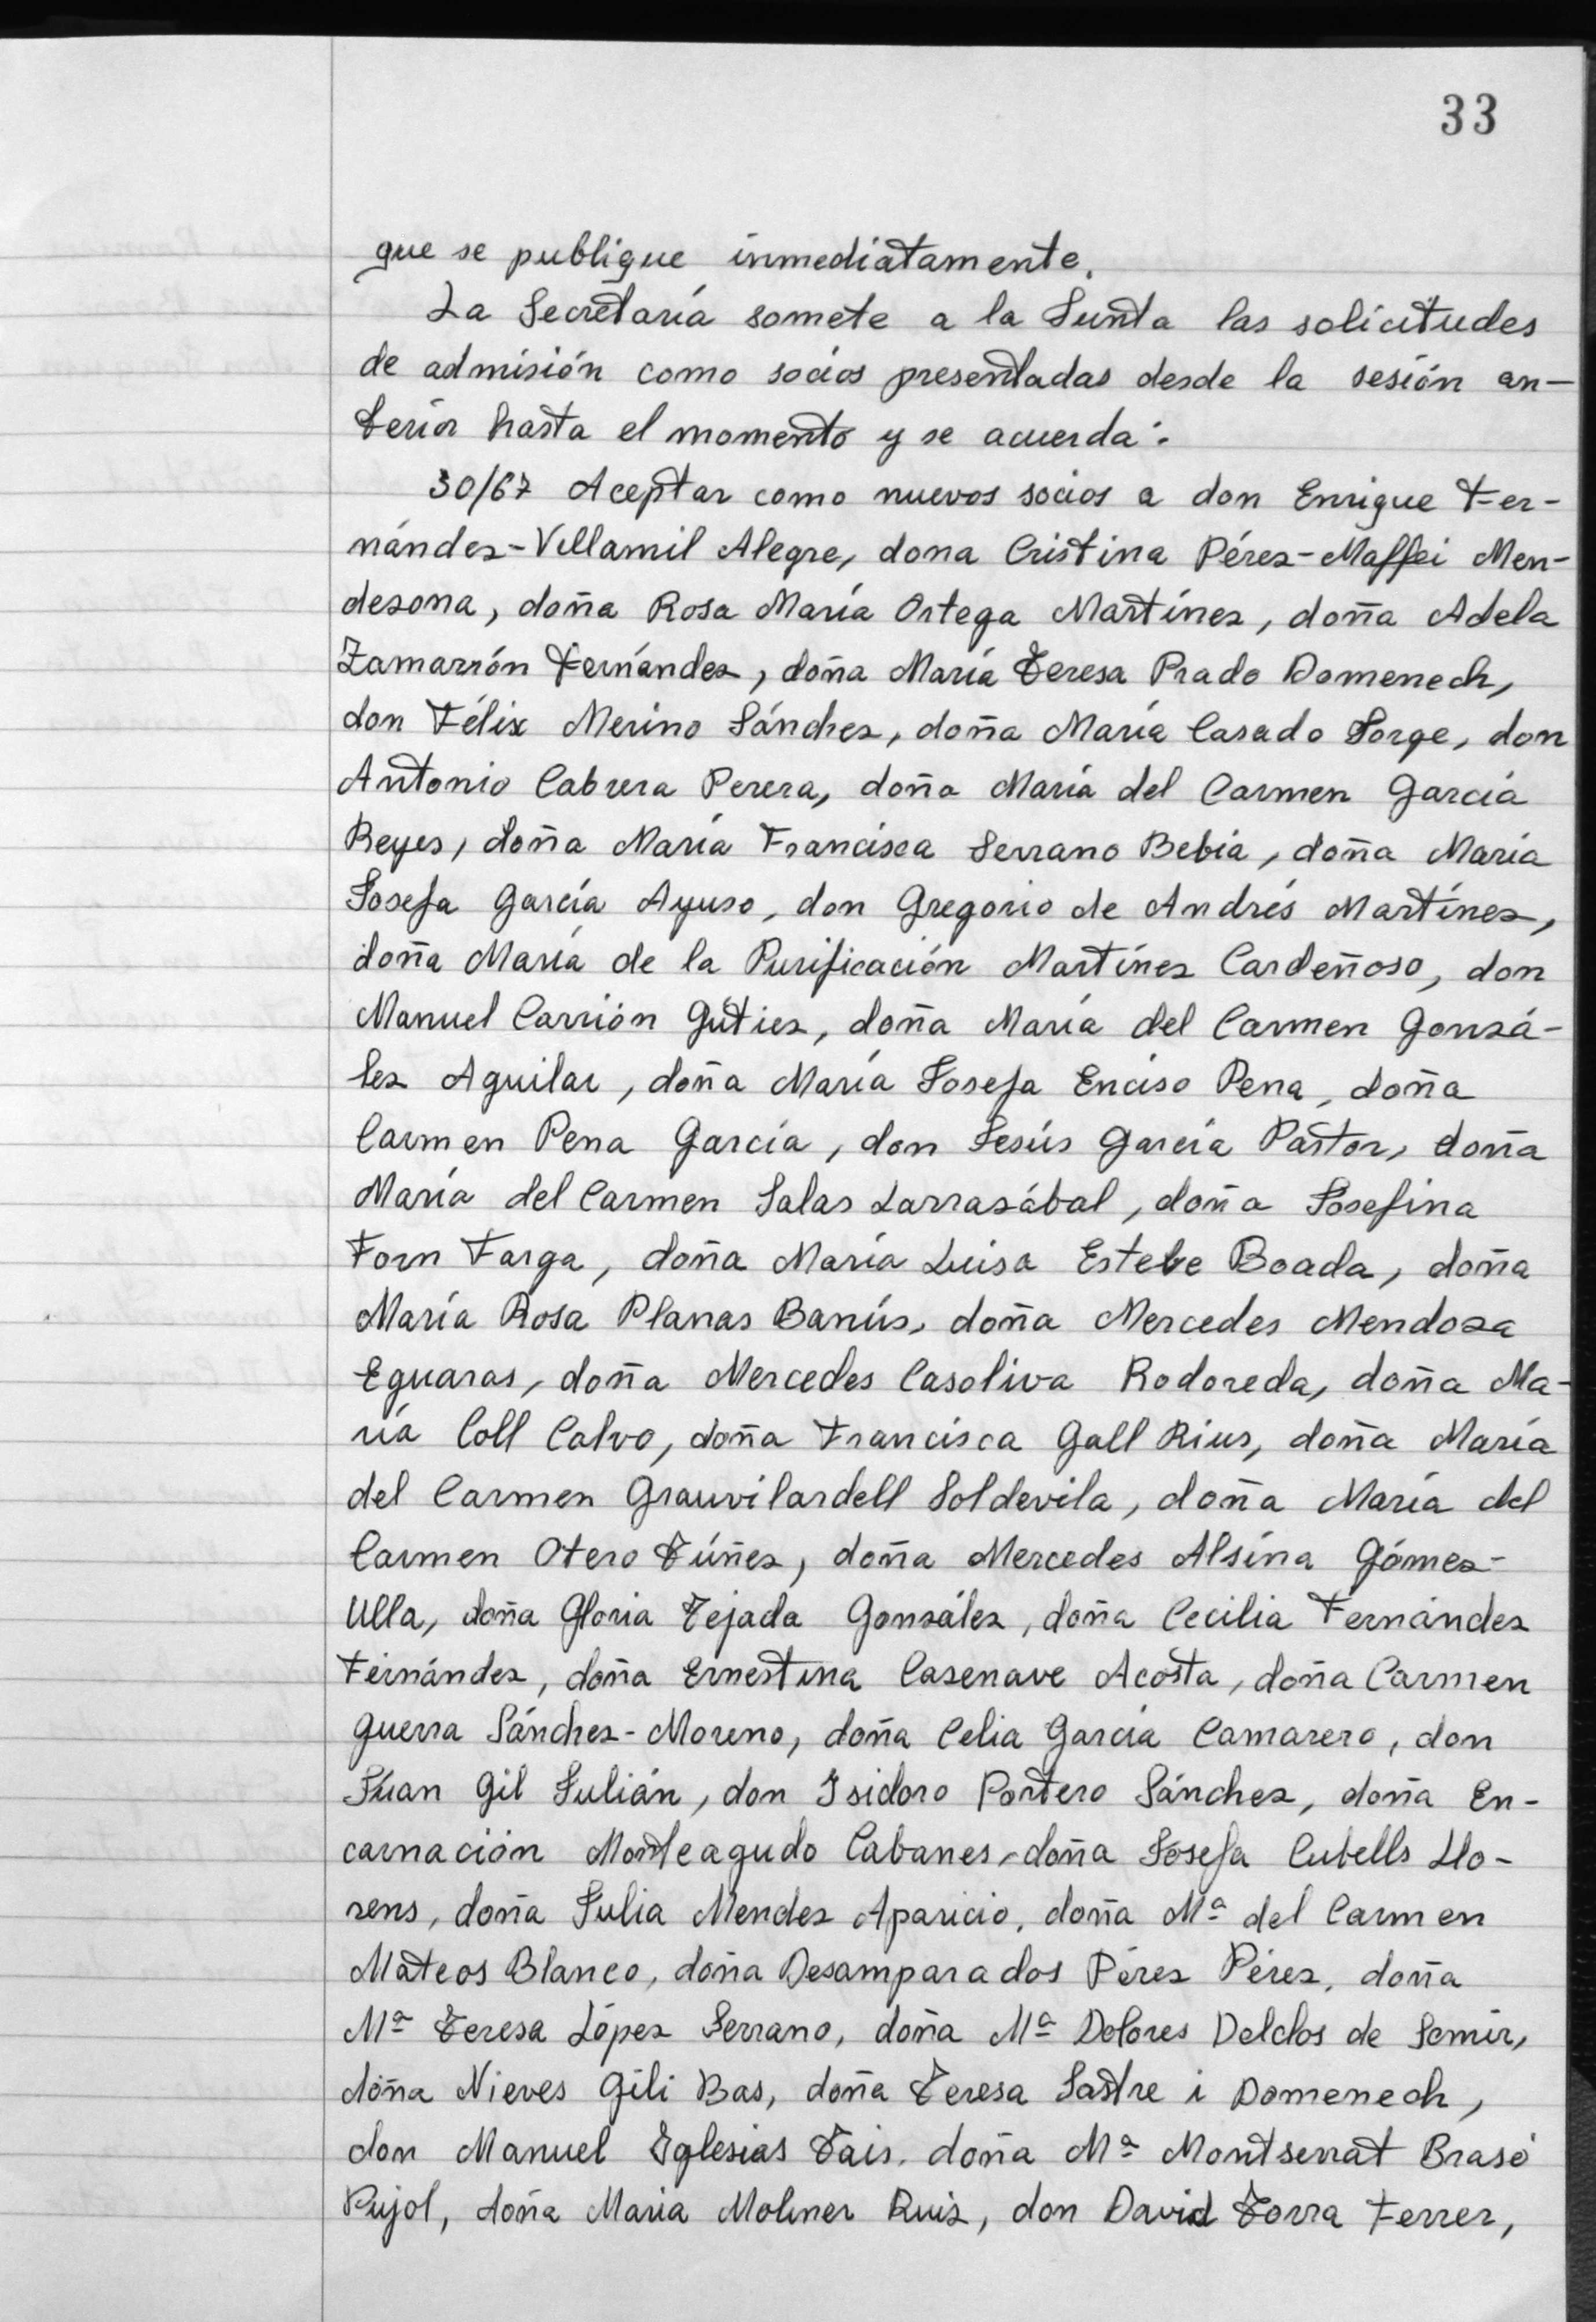 33
que se publique inmediatamente.
La Secretaría somete a la Junta las solicitudes
de admisión como socios presentadas desde la sesión an-
terior hasta el momento y se acuerda:
30/67 Aceptar como nuevos socios a don Enrique Fer-
nández-Villamil Alegre, dona Cristina Pérez-Maffei Men-
dezona, doña Rosa María Ortega Martínez, doña Adela
Zamarrón Fernández, doña María Teresa Prado Domenech,
don Félix Merino Sánchez, doña María Casado Jorge, don
Antonio Cabrera Perera, doña María del Carmen García
Reyes, doña María Francisca Serrano Bebia, doña María
Josefa García Ayuso, don Gregorio de Andrés Martínez,
doña María de la Purificación Martínez Cardeñoso, don
Manuel Carrión Gútiez, doña María del Carmen Gonzá-
lez Aguilar, doña María Josefa Enciso Pena, doña
Carmen Pena García, don Jesús García Pastor, doña
María del Carmen Salas Larrazábal, doña Josefina
Forn Farga, doña María Luisa Esteve Boada, doña
María Rosa Planas Banús, doña Mercedes Mendoza
Eguaras, doña Mercedes Casoliva Rodoreda, doña Ma-
ría Coll Calvo, doña Francisca Gall Rius, doña María
del Carmen Grauvilardell Soldevila, doña María del
Carmen Otero Túñez, doña Mercedes Alsina Gómez-
Ulla, doña Gloria Tejada González, doña Cecilia Fernández
Fernández, doña Ernestina Casenave Acosta, doña Carmen
Guerra Sánchez-Moreno, doña Celia García Camarero, don
Juan Gil Julián, don Isidoro Portero Sánchez, doña En-
carnación Monteagudo Cabanes, doña Josefa Cubells Llo-
rens, doña Julia Mendez Aparicio, doña Mª del Carmen
Mateos Blanco, doña Desamparados Pérez Pérez, doña
Mª Teresa López Serrano, doña Mª Dolores Delclos de Semir,
doña Nieves Gili Bas, doña Teresa Sastre i Domenech,
don Manuel Iglesias Tais, doña Mª Montserrat Brasó
Pujol, doña Maria Moliner Ruiz, don David Torra Ferrer,